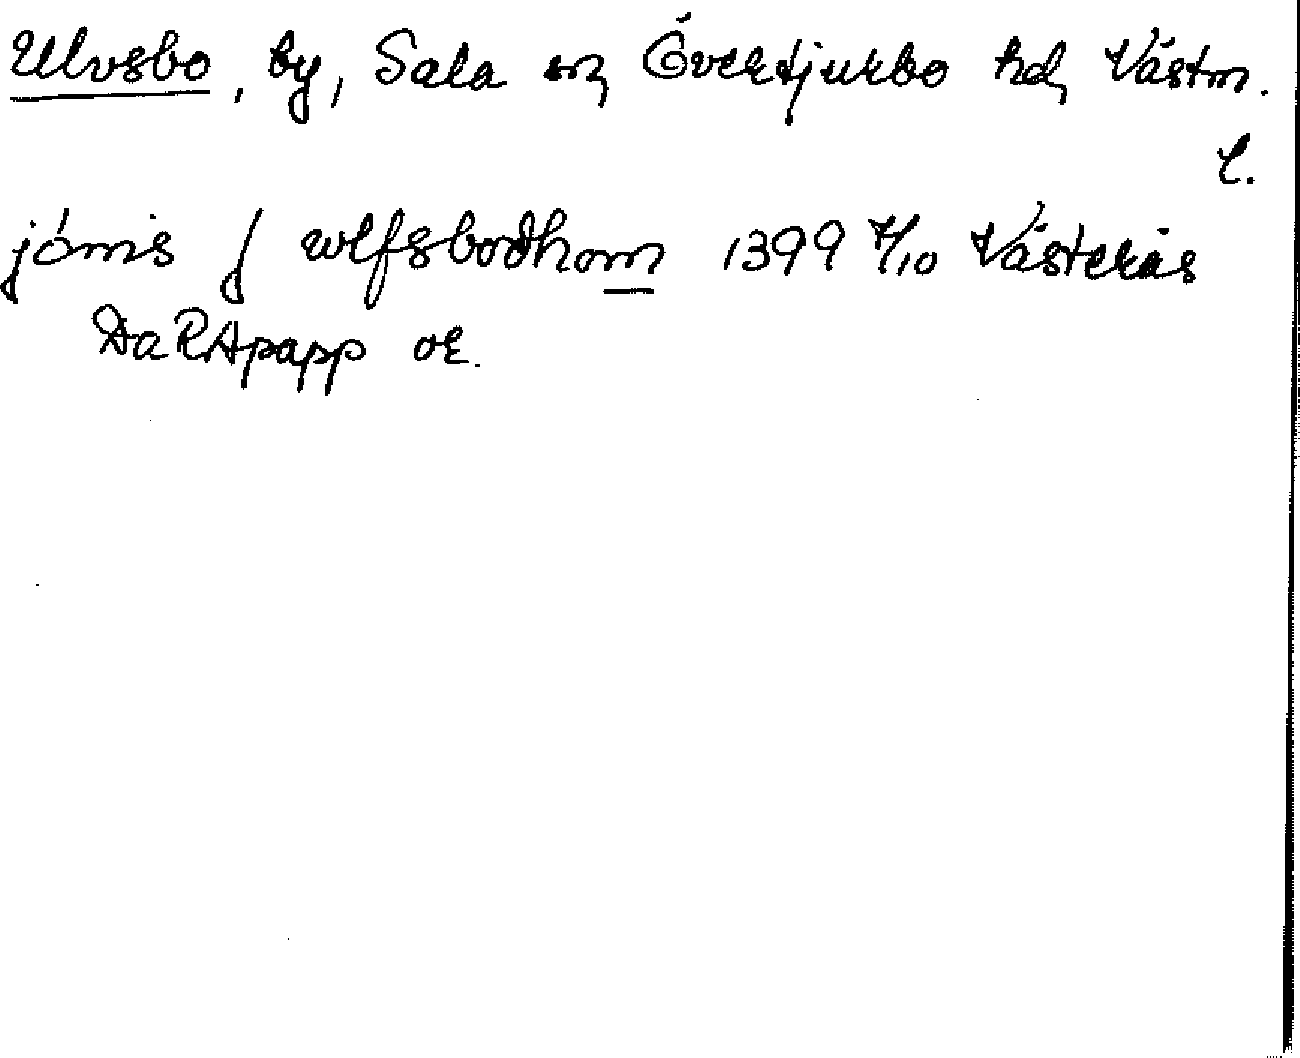 Ulvsbo, by, Sala sn, Övertjurbo hd, Västm.
l.
jönis j wlfsbodhom 1399 7/10 Västerås
Da RApapp or.